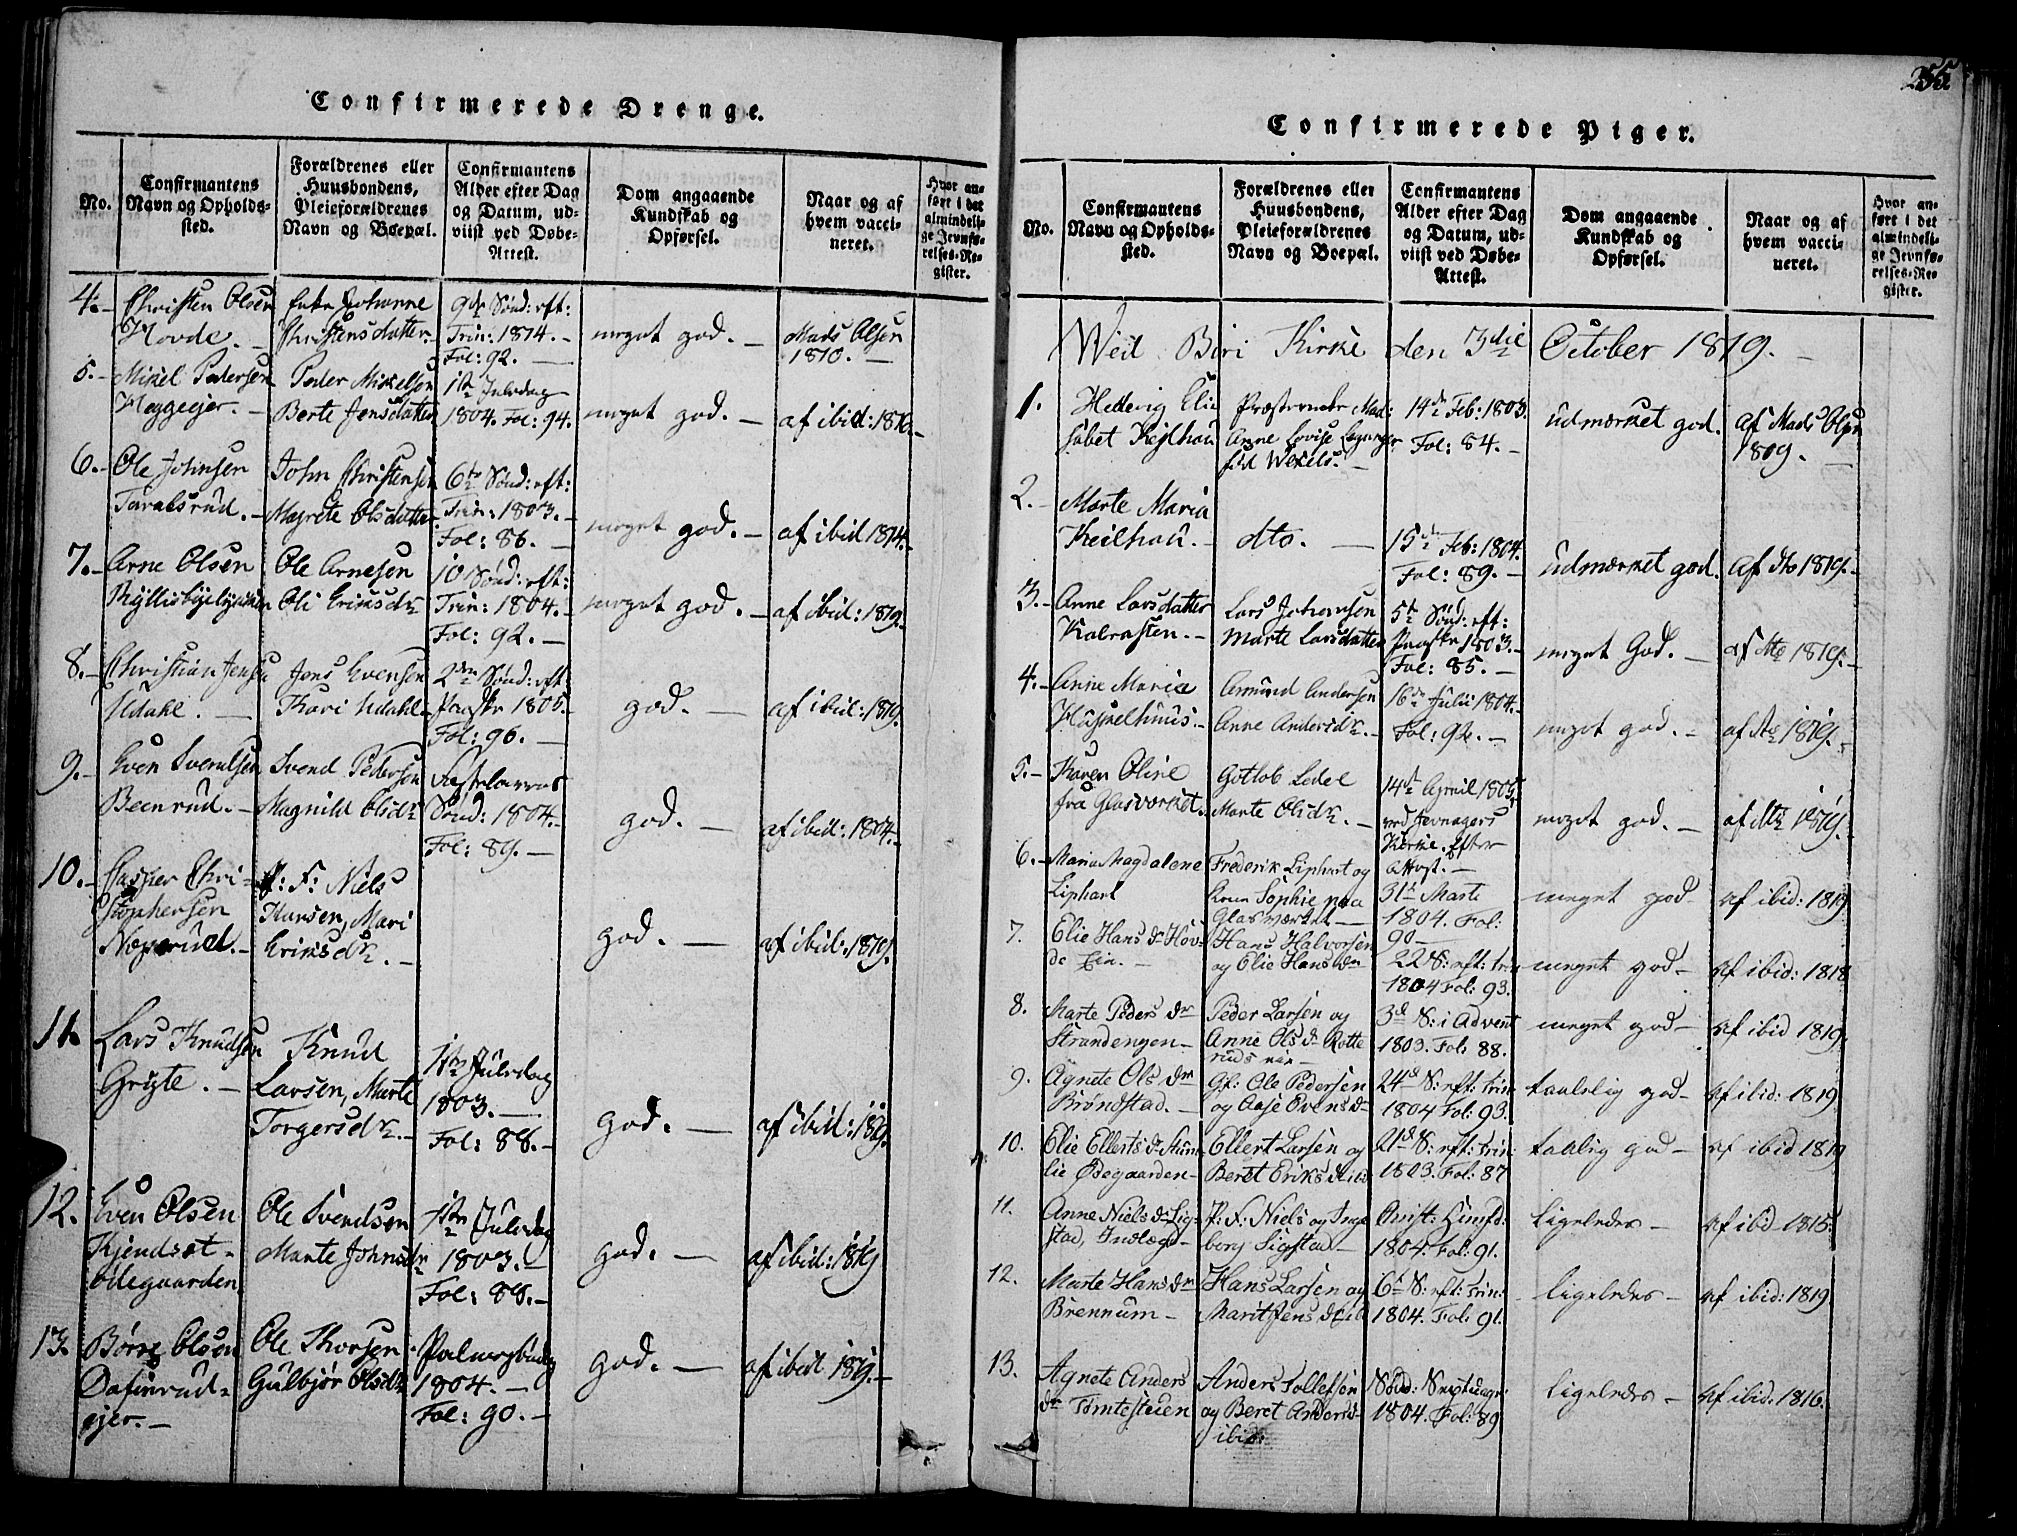 255
Confirmerede Drenge.
No.
Confirmantens
Navn og Opholds-
sted.
Forældrenes eller
Huusbondens,
Pleieforældrenes
Navn og Boepæl.
Confirmantens
Alder efter Dag
og Datum, ud-
viist ved Døbe-
Attest.
Dom angaaende
Kundskab og
Opførsel.
Naar og af
hvem vacci-
neret.
Hvor an-
ført i det
almindeli-
ge Jevnfø-
relses-Re-
gister.
4.- Christen Olsen
Hovde. -
Enke Johanne
Christensdatter.
9de Sønd: eft:
Trin: 1814. -
Fol: 92. -
meget god. -
Mads Olsen
1810. -
5.- Mikel Pedersen
Heggeejer. -
Peder Mikelsen
Berte Jensdatter
1ste Juledag
1804. Fol: 94.
meget god. -
af ibid: 1816.-
6.- Ole Johnsen
Taralsrud. -
John Christensen
Magrete Olsdatter
6te Sønd: eft:
Trin: 1803. -
Fol: 86. -
meget god. -
af ibid 1814.-
7.- Arne Olsen
Ole Arnesen
Oli Eriksdr
10 Sønd: eft:
Trin: 1804. -
Fol: 92. -
meget god. -
af ibid: 1819.-
8.- Christian Jensen
Udahl. -
Jens Evensen
Kari Udahl-
2den Sønd: eft:
Paaske 1805.-
Fol: 96. -
god. -
af ibid: 1819.
9.- Even Svendsen
Beenrud. -
Svend Pedersen
Magnild Olsdr
Fastelavens
Sønd: 1804.-
Fol: 89. -
god. -
af ibid: 1804.-
10.- Casper Chri-
stophersen
Neperud. -
P: F: Niels
Hansen, Mari
Eriksdr. -
god. -
af ibid: 1819.
11. Lars Knudsen
Gryte. -
Knud
Larsen, Marte
Torgersdr. -
1ste Juledag
1803. -
Fol: 88. -
god. -
af ibid: 1819.
12. Even Olsen
Kjendset-
ødegaarden.
Ole Svendsen
Marte Johnsdr
1ste Juledag
1803. -
Fol: 88. -
god. -
af ibid: 1819
13. Børre Olsen
Dafinrud-
ejer. -
Ole Thorsen
Gulbjør Olsdr
Palmesøndag
1804. -
Fol: 90. -
god. -
af ibid 1819. -
Confirmerede Piger.
No.
Confirmantens
Navn og Opholds-
sted.
Forældrenes eller
Huusbondens,
Pleieforældrenes
Navn og Boepæl.
Confirmantens
Alder efter Dag
og Datum, ud-
viist ved Døbe-
Attest.
Dom angaaende
Kundskab og
Opførsel.
Naar og af
hvem vacci-
neret.
Hvor an-
ført i det
almindeli-
ge Jevnfø-
relses-Re-
gister.
Wed Biri Kirke den 3die October 1819. -
1. Hedevig Eli
sabet Kejlhau
Præsteenke Mad:
Anne Lovise
fød Wexels. -
14de Feb: 1803.
Fol: 84. -
udmærket god.
af Mads Olsen
1809. -
2.- Marte Maria
Keilhau. -
dto. -
15de Feb: 1804.
Fol: 89. -
udmærket god.
af dto 1819.-
3.- Anne Larsdatter
Kalrasten. -
Lars Johansen
Marte Larsdatter
5te Sønd: eft:
Paaske 1803.-
Fol: 85. -
meget God. -
af dto 1819.-
4.- Anne Maria
Haskelhuus. -
Amund Andersen
Anne Andersdr. -
16de Julii 1804.-
Fol: 92. -
meget god. -
af dto 1819.-
5.- Karen Oline
fra Glasværket.
Gotlob Ledel
Marte Olsdr. -
14de April 1805
ved Jevnagers
Kirke. efter
Attest. -
meget god. -
af dto 1819.-
6.- Maria Magdalene
Liphart
Frederik Liphart og
Kone Sophie paa
Glasværket -
31te Marts
1804. Fol:
90 -
meget god -
af ibid: 1819
7. Elie Hans dr Hov-
de Eie. -
Hans Halvorsen
og Elie Hans dr
22 S: eft: trin
1804 Fol: 93.
meget god -
af ibid: 1818
8. Marte Peders dr
Strandengen -
Peder Larsen og
Anne Ols dr Rotte
ruds eie -
3de S: i Advent
1803. Fol: 88.
meget god -
af ibid 1819.
9. Agnete Ols dr
Brøndstad. -
Gf: Ole Pedersen
og Aase Evens dr
24de S: eft: trin
1804 Fol: 93.
taalelig god -
af ibid: 1819
10. Elie Ellerts dr Skum
lie Ødegaarden -
Ellert Larsen og
Beret Eriks dr ibd
21de S: eft: trin:
1803. Fol: 87
taalelig god -
af ibid 1819
11. Anne Niels dr Sig-
stad, Indlægd -
P: F: Niels og Inge
borg Sigstad -
Christ: Himfd:
1804. Fol: 91.
ligeledes -
af ibid 1815.
12. Marte Hans dr
Brennum -
Hans Larsen og
Marit Jens dr ibd
6te S: eft: Trin:
1804. Fol: 91.
ligeledes -
af ibid: 1819
13. Agnete Anders
dr Tømtesteien
Anders Tollefsen
og Beret Anders dr
ibid.
1804. Fol: 89
ligeledes -
af ibid: 1816.